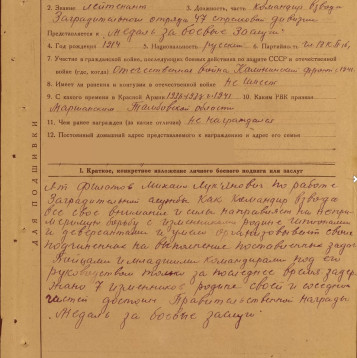 2. Звание лейтенант 3. Должность, часть Командир взвода
Заградительного отряда 47 стрелковой дивизии
Представляется к "Медаль за боевые Заслуги"
4. Год рождения 1914 5. Национальность русский 6. Партийность
7. Участие в гражданской войне, последующих боевых действиях по защите СССР и отечественной
войне (где, когда) Отечественная война Калининский фронт
8. Имеет ли ранения и контузии в отечественной войне не имеет
9. С какого времени в Красной Армии 10. Каким РВК призван
Тамбовской области
11. Чем ранее награжден (за какие отличия) Не награждался
12. Постоянный домашний адрес представляемого к награждению и адрес его семьи
ДЛЯ ПОДШИВКИ
I. Краткое, конкретное изложение личного боевого подвига или заслуг
Михаил по работе
Заградительной службы Как Командир взвода
все свое внимание и силы направляет на непри-
миримую борьбу с изменниками родине шпионами
и диверсантами и умело организовывает своих
подчиненных на выполнение поставленных задач
Бойцами и младшими командирами под его
руководством только за последнее время задер
жано 7 изменников родине своей и соседних
частей достоин Правительственной награды
"Медаль за боевые заслуги"